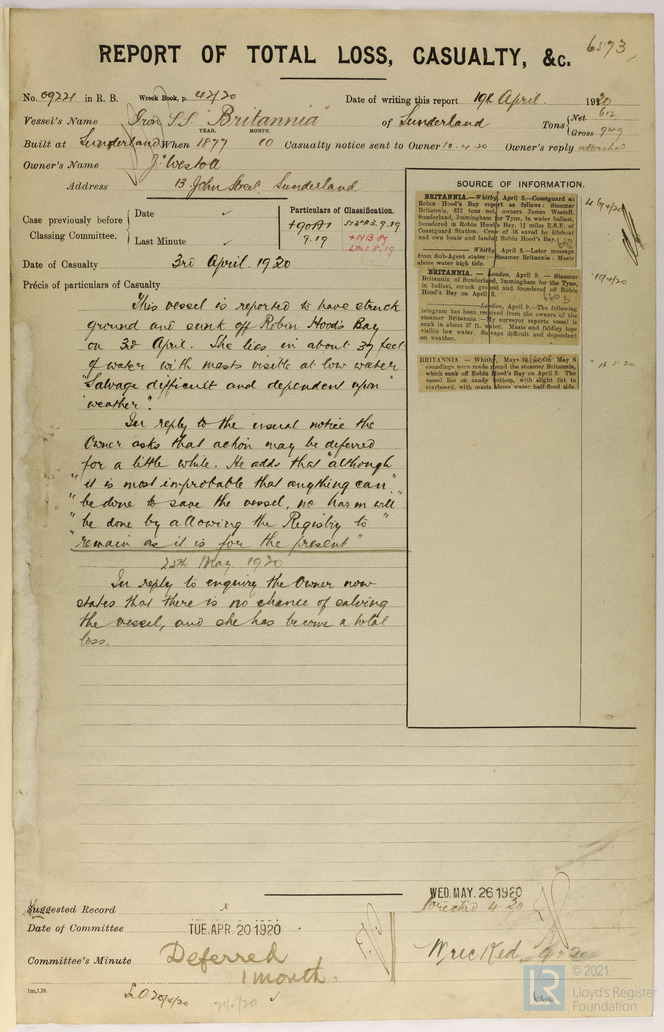 6573
REPORT OF TOTAL LOSS, CASUALTY, &c.
No. 09221 in R. B. Wreck Book, p. 42/20 Date of writing this report 19th April. 1920
Vessel's Name Iron SS "Britannia" of Sunderland Tons Net 612 Gross 949
Built at Sunderland When YEAR. 1877 MONTH. 10 Casualty notice sent to Owner 10.4.20 Owner's reply attached
Owner's Name J. Westoll
Address 13 John Street, Sunderland
Case previously before Classing Committee.
Date
Last Minute
Particulars of Classification.
+90A1
9.19
SSN°3.9.19
+NB 89
LMC 8.19
Date of Casualty 3rd April. 1920
Précis of particulars of Casualty
This vessel is reported to have struck
ground and sunk off Robin Hoods Bay
on 3d April. She lies in about 37 feet
of water with masts visible at low water
"Salvage difficult and dependent upon
weather".
In reply to the usual notice the
Owner asks that action may be deferred
for a little while. He adds that "although
"it is most improbable that anything can"
"be done to save the vessel, no harm will
"be done by allowing the Registry to"
"remain as it is for the present"
25th May 1920
In reply to enquiry the Owner now
states that there is no chance of salving
the vessel, and she has become a total
loss.
SOURCE OF INFORMATION.
BRITANNIA.—Whitby, April 3.—Coastguard at
Robin Hood's Bay report as follows: Steamer
Britannia, 612 tons net, owners James Westoll,
Sunderland, Immingham for Tyne, in water ballast,
foundered in Robin Hood's Bay, 1½ miles E.S.E. of
Coastguard Station. Crew of 16 saved by lifeboat
and own boats and landed Robin Hood's Bay.
Whitby, April 3.—Later message
from Sub-Agent states: Steamer Britannia: Masts
above water high tide.
BRITANNIA.—London, April 9.—Steamer
Britannia of Sunderland, Immingham for the Tyne,
in ballast, struck ground and foundered off Robin
Hood's Bay on April 3.
London, April 9.—The following
telegram has been received from the owners of the
steamer Britannia:—My surveyor reports vessel is
sunk in about 37 ft. water. Masts and fiddley tops
visible low water. Salvage difficult and dependent
on weather.
BRITANNIA.—Whitby, May 12.—On May 8
soundings were made round the steamer Britannia,
which sunk off Robin Hood's Bay on April 3. The
vessel lies on sandy bottom, with slight list to
starboard, with masts above water half-flood tide.
13.5.20
Suggested Record
Date of Committee TUE. APR. 20 1920
WED. MAY. 26 1920
Wrecked 4.20
Committee's Minute Deferred
1 month.
Wrecked 4.20
1m,1,19.
L.O. 20/4/20
© 2021
LR
Lloyd's Register
Foundation